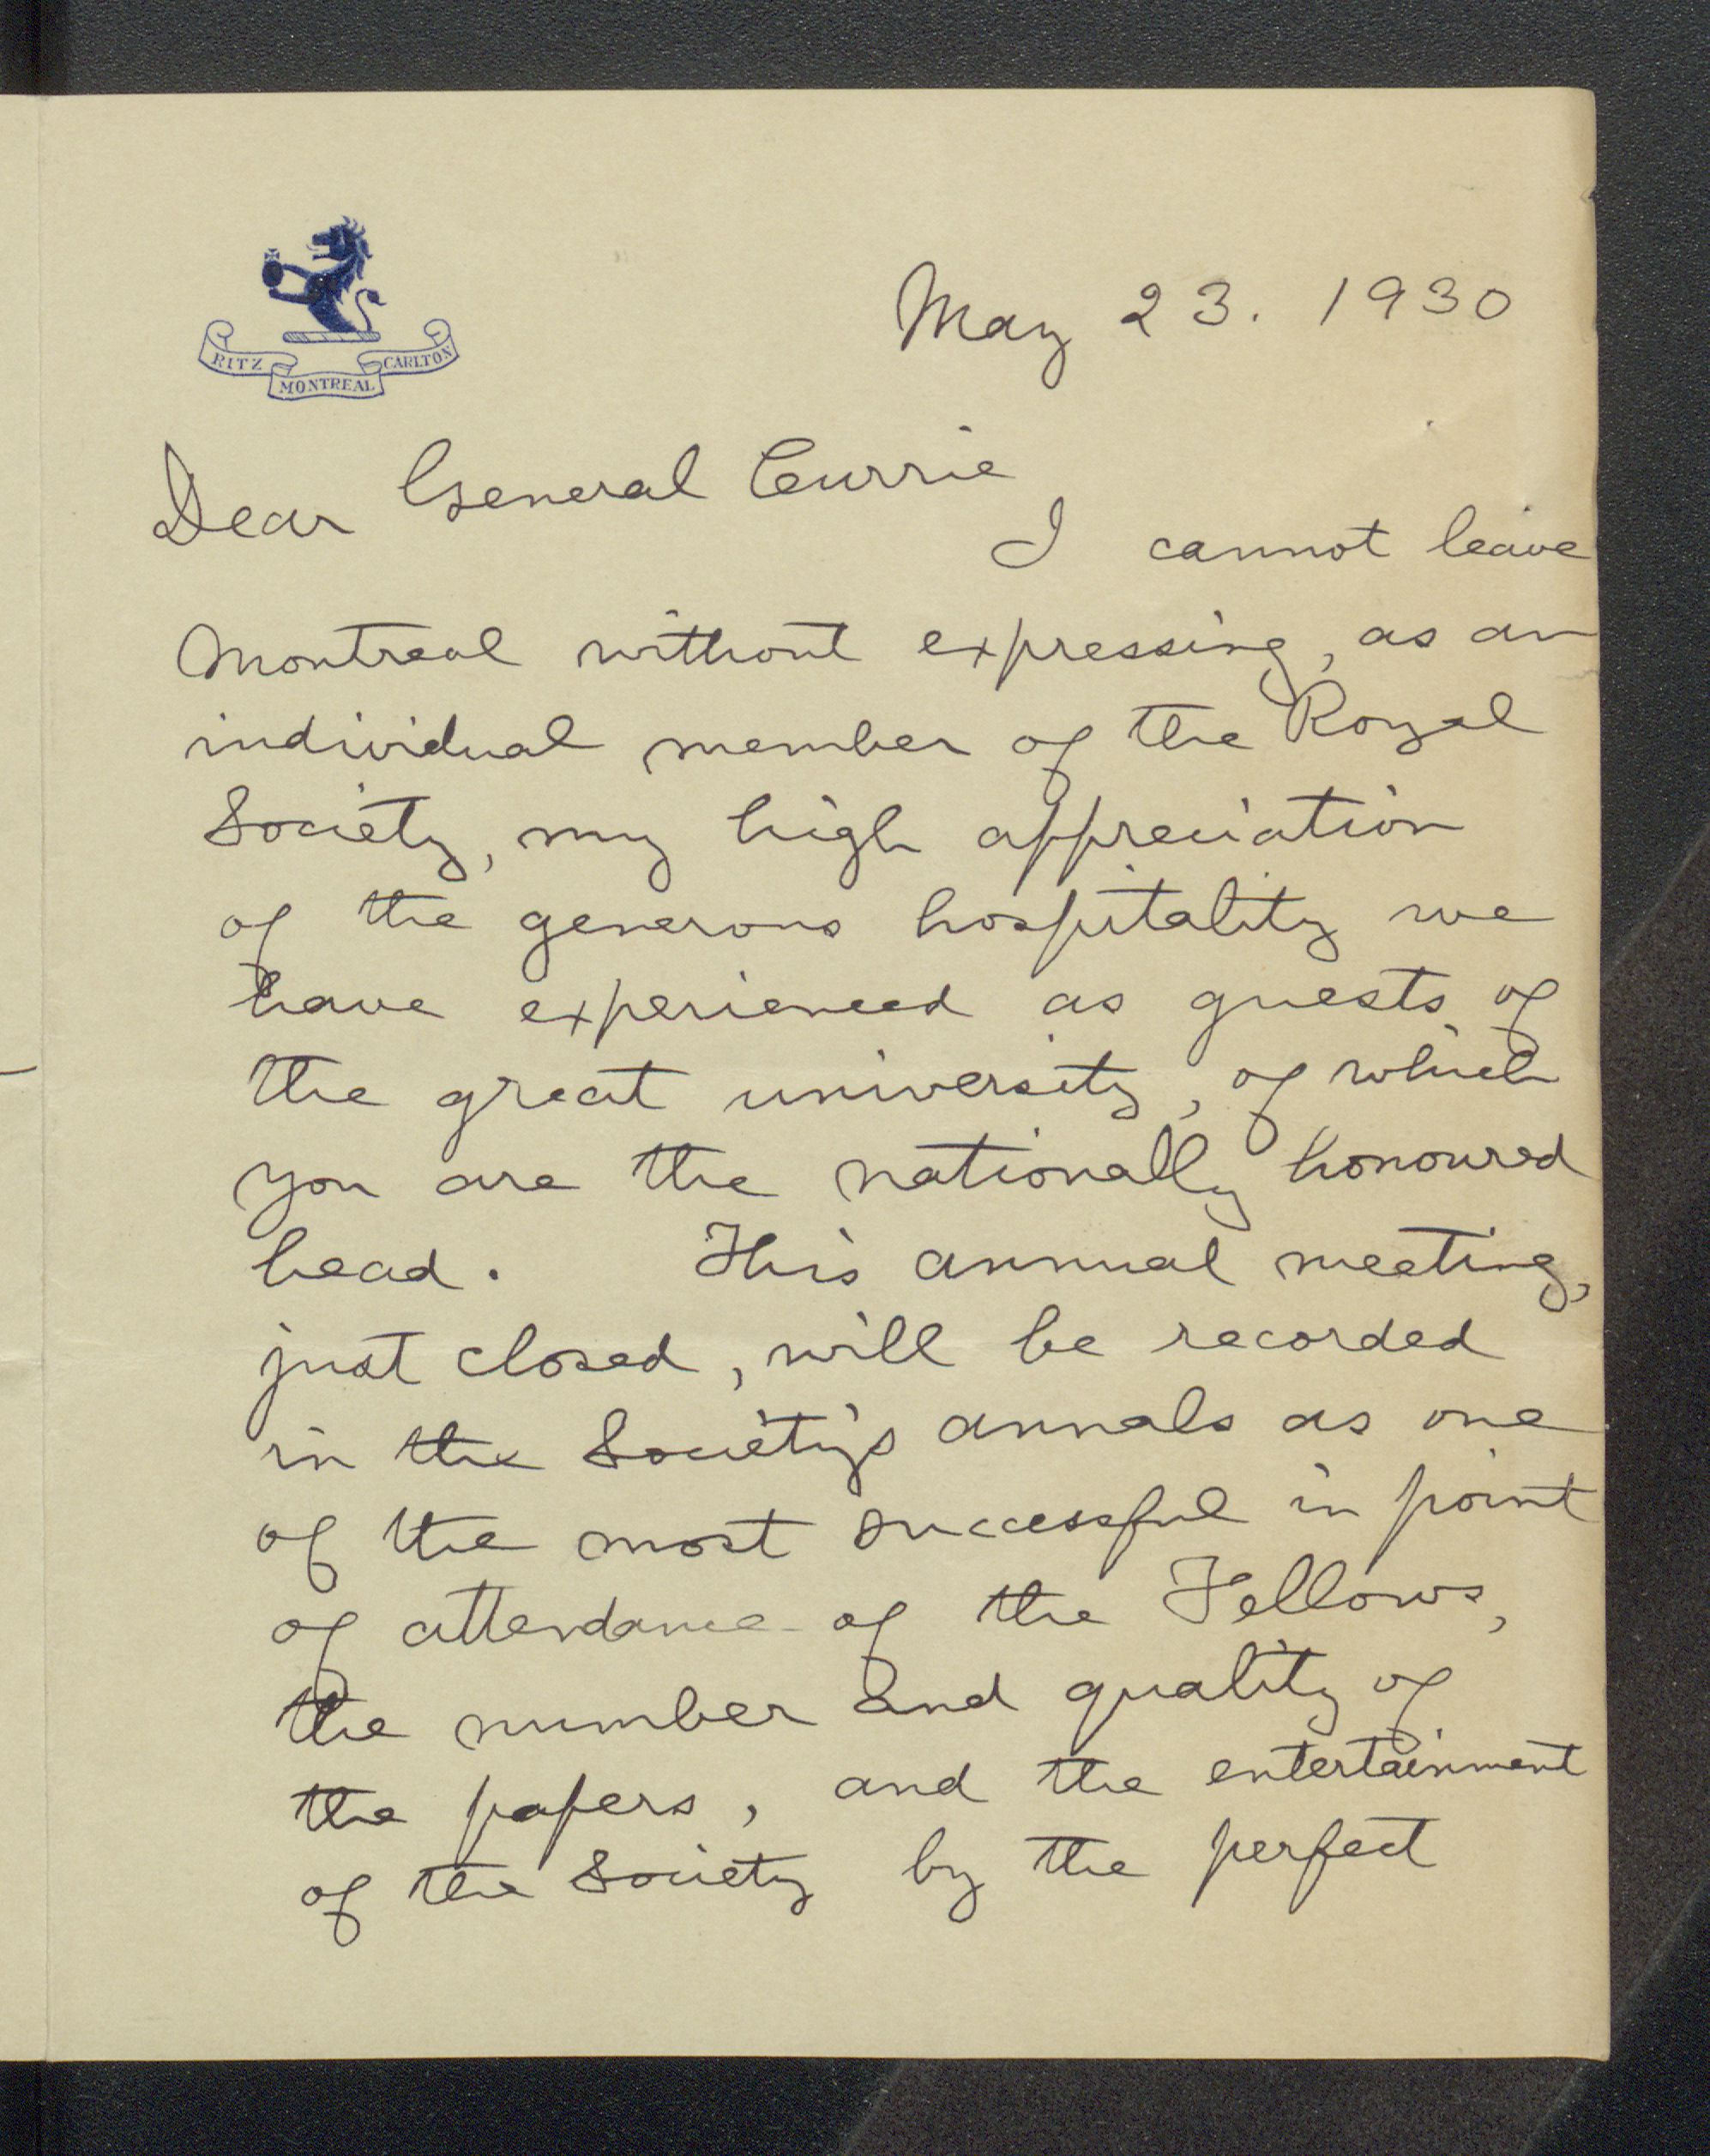 RITZ CARLTON
MONTREAL
May 23. 1930
Dear General Currie
I cannot leave
Montreal without expressing, as an
individual member of the Royal
Society, my high appreciation
of the generous hospitality we
have experienced as guests of
the great university, of which
you are the nationally honoured
head. This annual meeting,
just closed, will be recorded
in the Society's annals as one
of the most successful in point
of attendance of the Fellows,
the number and quality of
the papers, and the entertainment
of the Society by the perfect